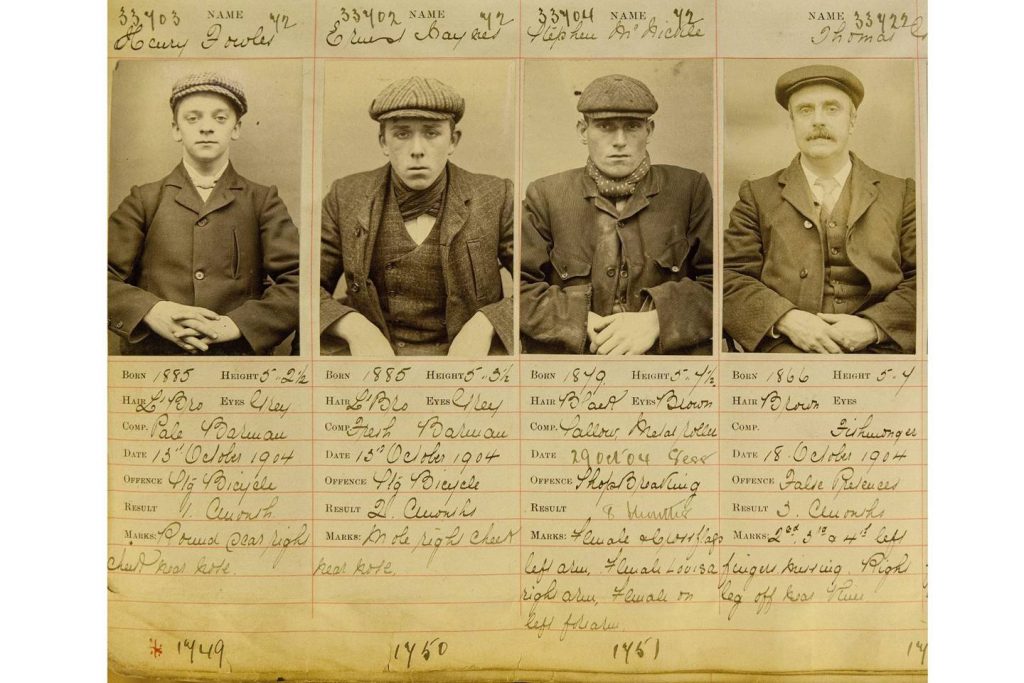 33703 NAME 72
Henry Fowles
Born 1885 Height 5-2½
Hair L't Bro Eyes Grey
Comp. Pale Barman
Date 15th October 1904
Offence Stg Bicycle
Result 1. Cmonth
Marks: Round scar right
cheek near nose.
1749
33702 NAME 72
Ernest Haynes
Born 1885 Height 5-3½
Hair L't Bro Eyes Grey
Comp. Fresh Barman
Date 15th October 1904
Offence Stg Bicycle
Result 2. Cmonths
Marks: Mole right cheek
near nose.
1750
33704 NAME 72
Stephen
Born 1879 Height 5-4½
Hair Black Eyes Brown
Comp. Sallow Metal roller
Date 29 Oct 04
Offence Shop Breaking
Result 8 Months
Marks: Female & Cross flags
left arm, Female Louisa
right arm, Female on
left forearm
1751
NAME 33722
Thomas
Born 1866 Height 5-4
Hair Brown Eyes
Comp. Fishmonger
Date 18 October 1904
Offence False Pretences
Result 3. Cmonths
Marks: 2nd, 3rd & 4th left
fingers missing. Right
leg off near knee
17